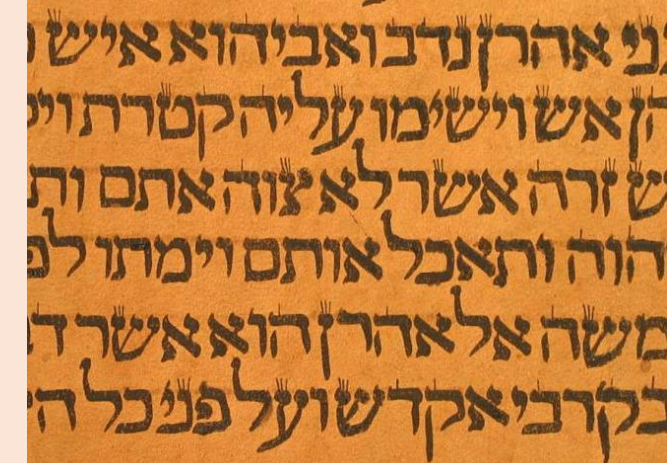 ני אהרן נדב ואביהוא איש
הן אש וישימו עליה קטרת וי
ש זרה אשר לא צוה אתם ות
הוה ותאכל אותם וימתו לפ
משה אל אהרן הוא אשר ד
בקרבי אקדש ועל פני כל ה